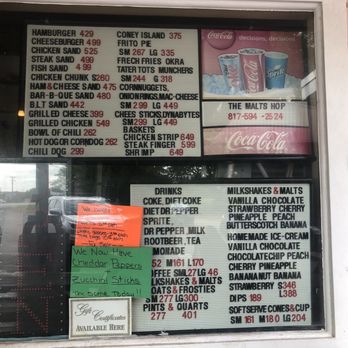 HAMBURGER 429
CHEESEBURGER 499
CHICKEN SAND 525
STEAK SAND 499
FISH SAND 499
CHICKEN CHUNK 5260
HAM & CHEESE SAND 475
BAR-B-QUE SAND 480
B.L.T SAND 442
GRILLED CHEESE 399
GRILLED CHICKEN 549
BOWL OF CHILI 262
HOT DOG OR CORNDOG 262
CHILI DOG 299
CONEY ISLAND 375
FRITO PIE
SM 267 LG 335
FRECH FRIES OKRA
TATER TOTS MUNCHERS
SM 244 G 318
CORNNUGGETS,
ONION RINGS, MAC-CHEESE
SM 299 LG 449
CHEES STICKS, DYNABYTES
SM 299 LG 449
BASKETS
CHICKEN STRIP 649
STEAK FINGER 599
SHRIMP 649
Coca-Cola
decisions, decisions
Coca-Cola
Sprite
THE MALTS HOP
817-594-2524
Coca-Cola
DRINKS
COKE, DIET COKE
DIET DR PEPPER
SPRITE,
DR PEPPER, MILK
ROOTBEER, TEA
MONADE
152 M 161 L 170
OFFEE SM 27 LG 46
LKSHAKES & MALTS
OATS & FROSTIES
SM 277 LG 300
PINTS & QUARTS
277 401
MILKSHAKES & MALTS
VANILLA CHOCOLATE
STRAWBERRY CHERRY
PINEAPPLE PEACH
BUTTERSCOTCH BANANA
HOMEMADE ICE-CREAM
VANILLA CHOCOLATE
CHOCOLATECHIP PEACH
CHERRY PINEAPPLE
BANANA NUT BANANA
STRAWBERRY S 346
DIPS 189 L 388
SOFT SERVE CONES & CUP
SM 161 M 180 LG 204
We Now Have
Cheddar Peppers
Zucchini Sticks
Try Some Today!!
Gift
Certificates
AVAILABLE HERE